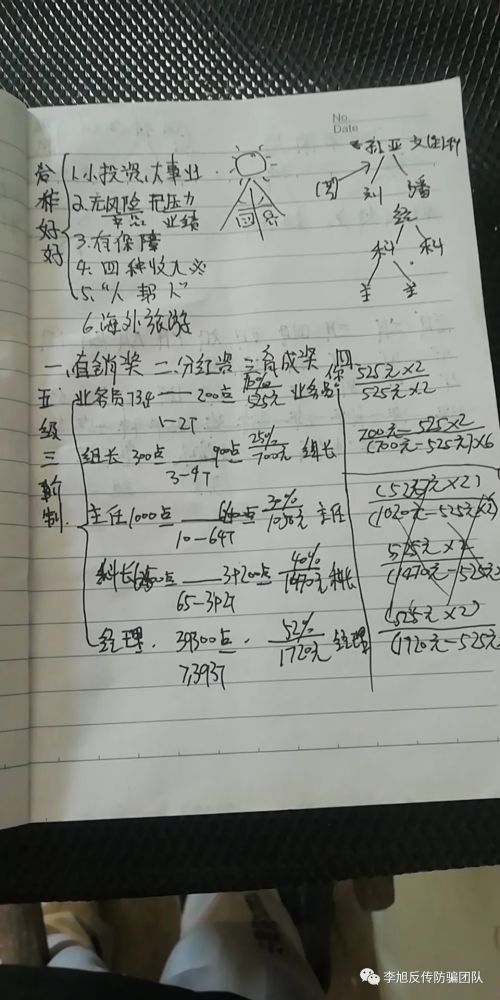 No.
Date
1.小投资,大事业
2.无风险 无压力
业绩
3.有保障
4.四种收入
5."人帮人"
6.海外旅游
刘 潘
经
科 科
主 主
一.直销奖 二.分红奖 三.育成奖 四
五级三阶制
业务员 1份 — 200点 15% 525元 业务员
1-2T
525元×2
525元×2
组长 300点 — 900点 25% 700元 组长
3-9T
700元-525×2
(700元-525元)×6
主任 1000点 — 6400点 30% 主任
10-64T
(525元×2)
(1020元-525元×2)
科长 6500点 — 39200点 40% 1470元 科长
65-392T
525元×2
(1470元-525元
经理. 39300点. 52% 1720元 经理
393T
(525元×2)
(1720元-525元
李旭反传防骗团队